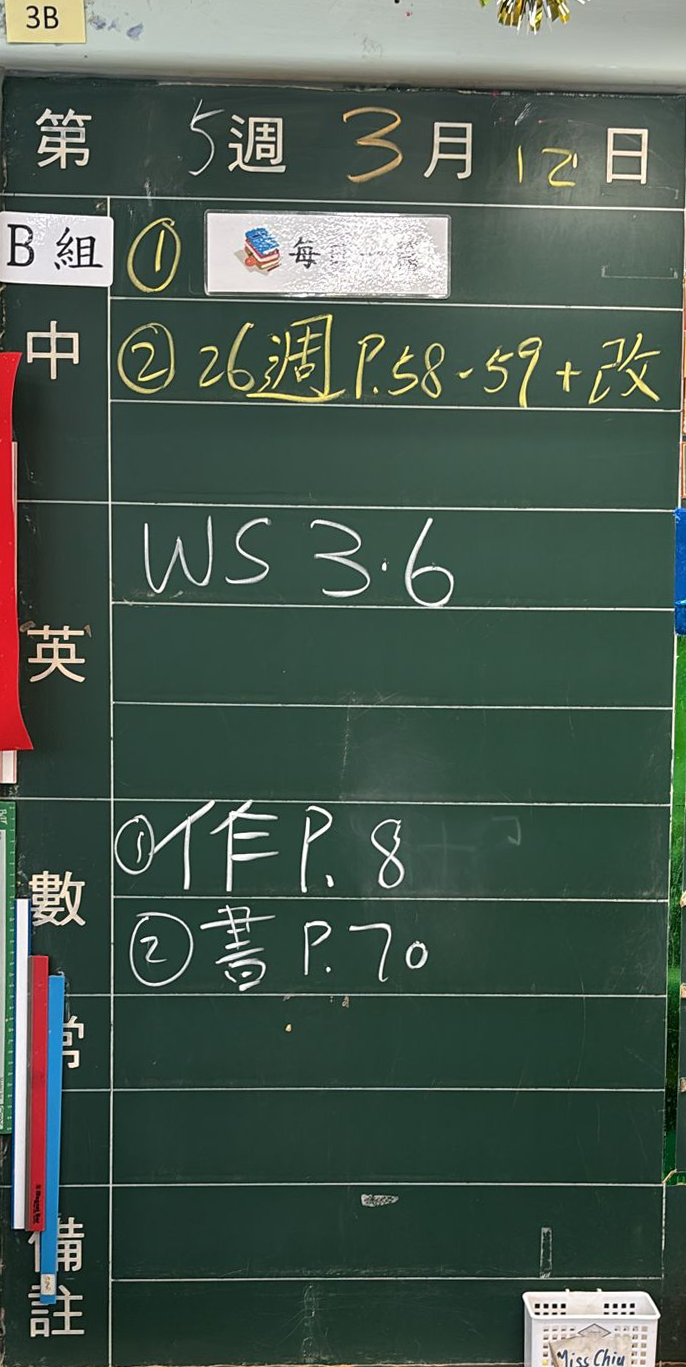 3B
第 5 週 3 月 12 日
B 組
① 每 一
中
② 26週 P.58-59+改
英
WS 3.6
數
① 作 P. 8
② 書 P. 70
常
備註
Miss Chiu